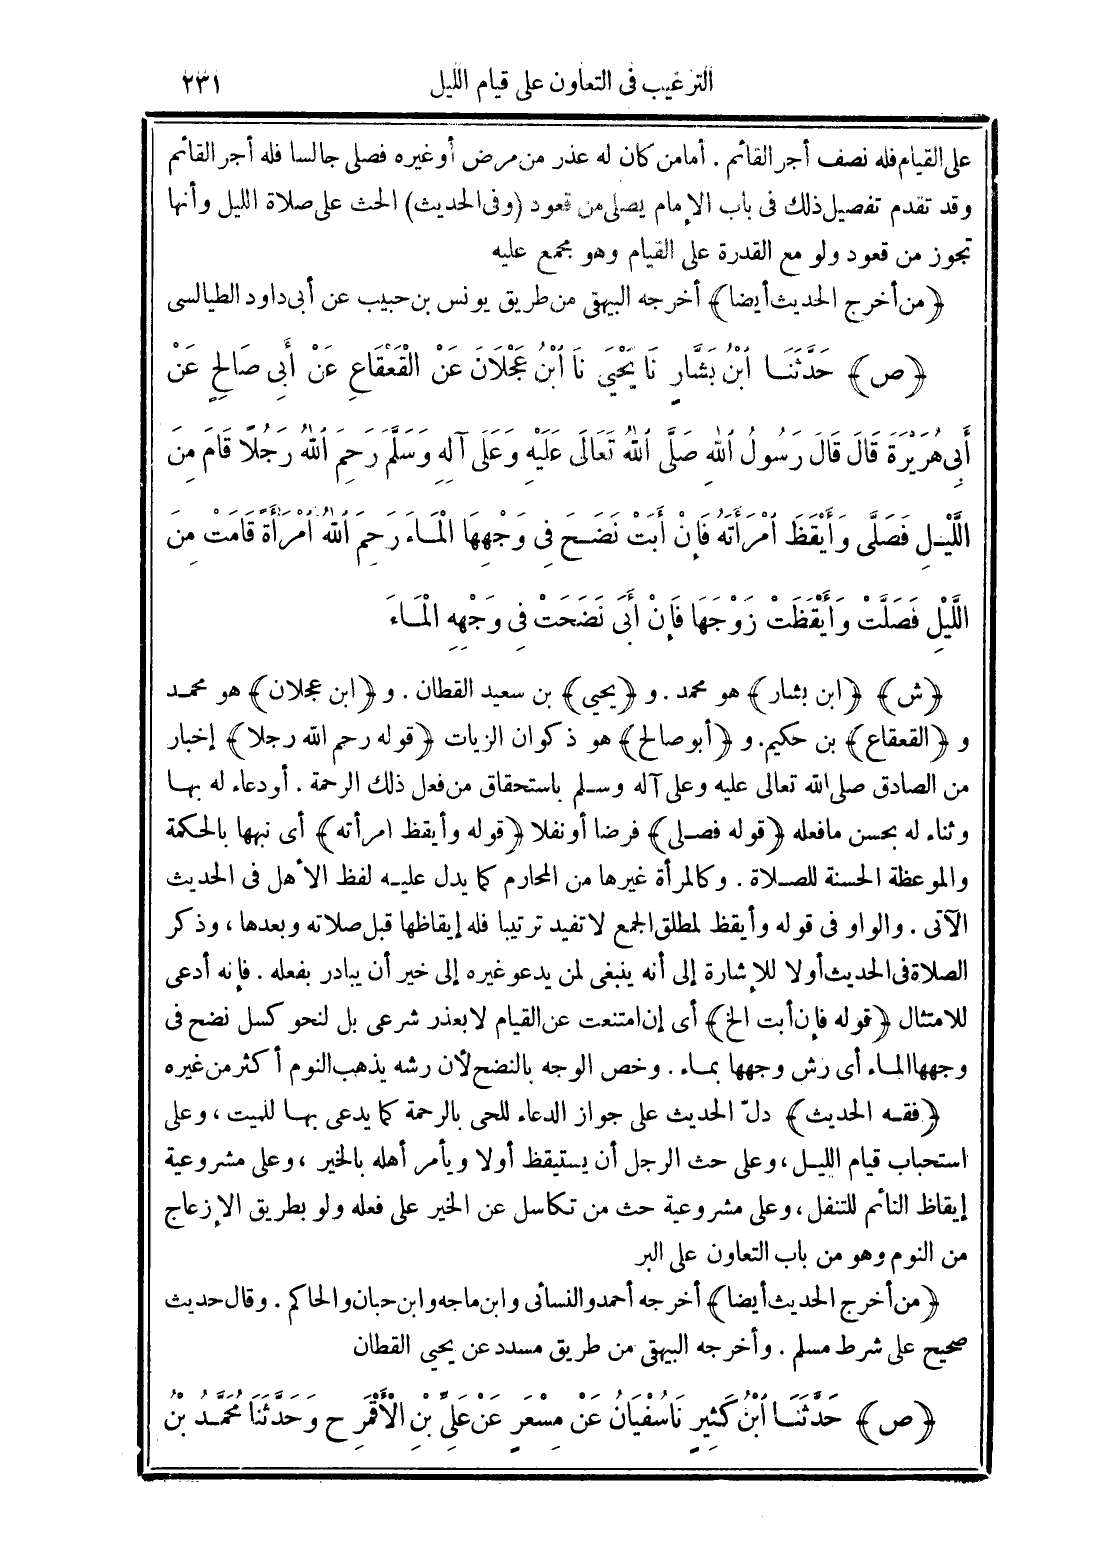 الترغيب فى التعاون على قيام الليل ٢٣١
على القيام فله نصف أجر القائم . أما من كان له عذر من مرض أو غيره فصلى جالسا فله أجر القائم
وقد تقدم تفصيل ذلك فى باب الإمام يصلى من قعود (وفى الحديث) الحث على صلاة الليل وأنها
تجوز من قعود ولو مع القدرة على القيام وهو مجمع عليه
﴿من أخرج الحديث أيضا﴾ أخرجه البيهقى من طريق يونس بن حبيب عن أبى داود الطيالسى
﴿ص﴾ حَدَّثَنَا ابْنُ بَشَّارٍ نَا يَحْيَى نَا ابْنُ عَجْلَانَ عَنْ الْقَعْقَاعِ عَنْ أَبِى صَالِحٍ عَنْ
أَبِى هُرَيْرَةَ قَالَ قَالَ رَسُولُ اللهِ صَلَّى اللهُ تَعَالَى عَلَيْهِ وَعَلَى آلِهِ وَسَلَّمَ رَحِمَ اللهُ رَجُلًا قَامَ مِنَ
اللَّيْلِ فَصَلَّى وَأَيْقَظَ امْرَأَتَهُ فَإِنْ أَبَتْ نَضَحَ فِى وَجْهِهَا الْمَاءَ رَحِمَ اللهُ امْرَأَةً قَامَتْ مِنَ
اللَّيْلِ فَصَلَّتْ وَأَيْقَظَتْ زَوْجَهَا فَإِنْ أَبَى نَضَحَتْ فِى وَجْهِهِ الْمَاءَ
﴿ش﴾ ﴿ابن بشار﴾ هو محمد . و ﴿يحيى﴾ بن سعيد القطان . و ﴿ابن عجلان﴾ هو محمد
و ﴿القعقاع﴾ بن حكيم. و ﴿أبو صالح﴾ هو ذكوان الزيات ﴿قوله رحم الله رجلا﴾ إخبار
من الصادق صلى الله تعالى عليه وعلى آله وسلم باستحقاق من فعل ذلك الرحمة . أو دعاء له بها
وثناء له بحسن ما فعله ﴿قوله فصلى﴾ فرضا أو نفلا ﴿قوله وأيقظ امرأته﴾ أى نبهها بالحكمة
والموعظة الحسنة للصلاة . وكالمرأة غيرها من المحارم كما يدل عليه لفظ الأهل فى الحديث
الآتى . والواو فى قوله وأيقظ لمطلق الجمع لا تفيد ترتيبا فله إيقاظها قبل صلاته وبعدها ، وذكر
الصلاة فى الحديث أولا للإشارة إلى أنه ينبغى لمن يدعو غيره إلى خير أن يبادر بفعله . فإنه أدعى
للامتثال ﴿قوله فإن أبت الخ﴾ أى إن امتنعت عن القيام لا بعذر شرعى بل لنحو كسل نضح فى
وجهها الماء أى رش وجهها بماء . وخص الوجه بالنضح لأن رشه يذهب النوم أكثر من غيره
﴿فقه الحديث﴾ دلّ الحديث على جواز الدعاء للحى بالرحمة كما يدعى بها للميت ، وعلى
استحباب قيام الليل ، وعلى حث الرجل أن يستيقظ أولا ويأمر أهله بالخير ، وعلى مشروعية
إيقاظ النائم للتنفل ، وعلى مشروعية حث من تكاسل عن الخير على فعله ولو بطريق الإزعاج
من النوم وهو من باب التعاون على البر
﴿من أخرج الحديث أيضا﴾ أخرجه أحمد والنسائى وابن ماجه وابن حبان والحاكم . وقال حديث
صحيح على شرط مسلم . وأخرجه البيهقى من طريق مسدد عن يحيى القطان
﴿ص﴾ حَدَّثَنَا ابْنُ كَثِيرٍ نَا سُفْيَانُ عَنْ مِسْعَرٍ عَنْ عَلِىِّ بْنِ الْأَقْمَرِ ح وَحَدَّثَنَا مُحَمَّدُ بْنُ